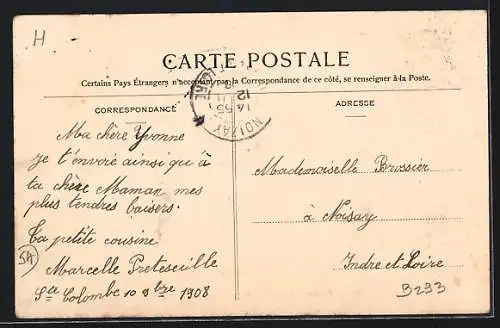 H
CARTE POSTALE
Certains Pays Étrangers n'acceptant pas la Correspondance de ce côté, se renseigner à la Poste.
CORRESPONDANCE
ADRESSE
NOIZAY
14 55
12
Ma chère Yvonne
Je t'envoie ainsi qu'à
ta chère Maman mes
plus tendres baisers.
Ta petite cousine
Marcelle Preteseille
Ste Colombe 10 9bre 1908
Mademoiselle Brossier
à Noisay
Indre et Loire
54
B293